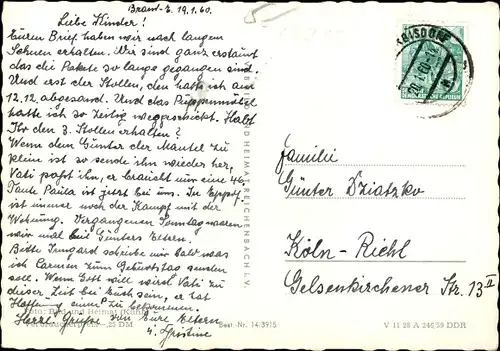 Brand-E. 19.1.60.
Liebe Kinder!
Euren Brief haben wir nach langem
Sehnen erhalten. Wir sind ganz erstaunt
das die Pakete so lange gegangen sind.
Und erst der Stollen, den hatte ich am
12.12. abgesand. Und das Puppenmöbel
hatte ich so zeitig weggeschickt. Habt
Ihr den 3. Stollen erhalten?
Wenn dem Günter der Mantel zu
klein ist so sende ihn wieder her,
Vati paßt ihn, er braucht nur eine 46.
Tante Paula ist jetzt bei uns. In
ist immer noch der Kampf mit der
Wohnung. Vergangenen Sonntag waren
wir mal bei Günters Eltern.
Bitte Irmgard schreibe mir bald was
ich Carmen zum Geburtstag senden
soll. Wenn Gott will wird Vati zu
dieser Zeit bei Euch sein, er hat
Hoffnung zu bekommen.
Herzl. Grüße von Eure Eltern
u. Christine
BILD UND HEIMAT REICHENBACH I. V.
Foto: Bild und Heimat
Verbraucherpreis -,25 DM
Best.-Nr. 14/3915
V 11 28 A 246/59 DDR
20.1.60
DEUTSCHE DEMOKRATISCHE REPUBLIK
Familie
Günter Dziatzko
Köln-Riehl
Gelsenkirchener Str. 13 II